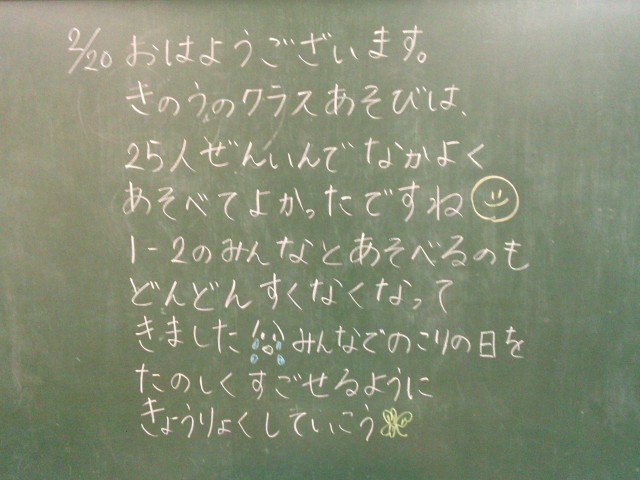 2/20 おはようございます。
きのうのクラスあそびは、
25人ぜんいんでなかよく
あそべてよかったですね
1-2のみんなとあそべるのも
どんどんすくなくなって
きました みんなでのこりの日を
たのしくすごせるように
きょうりょくしていこう